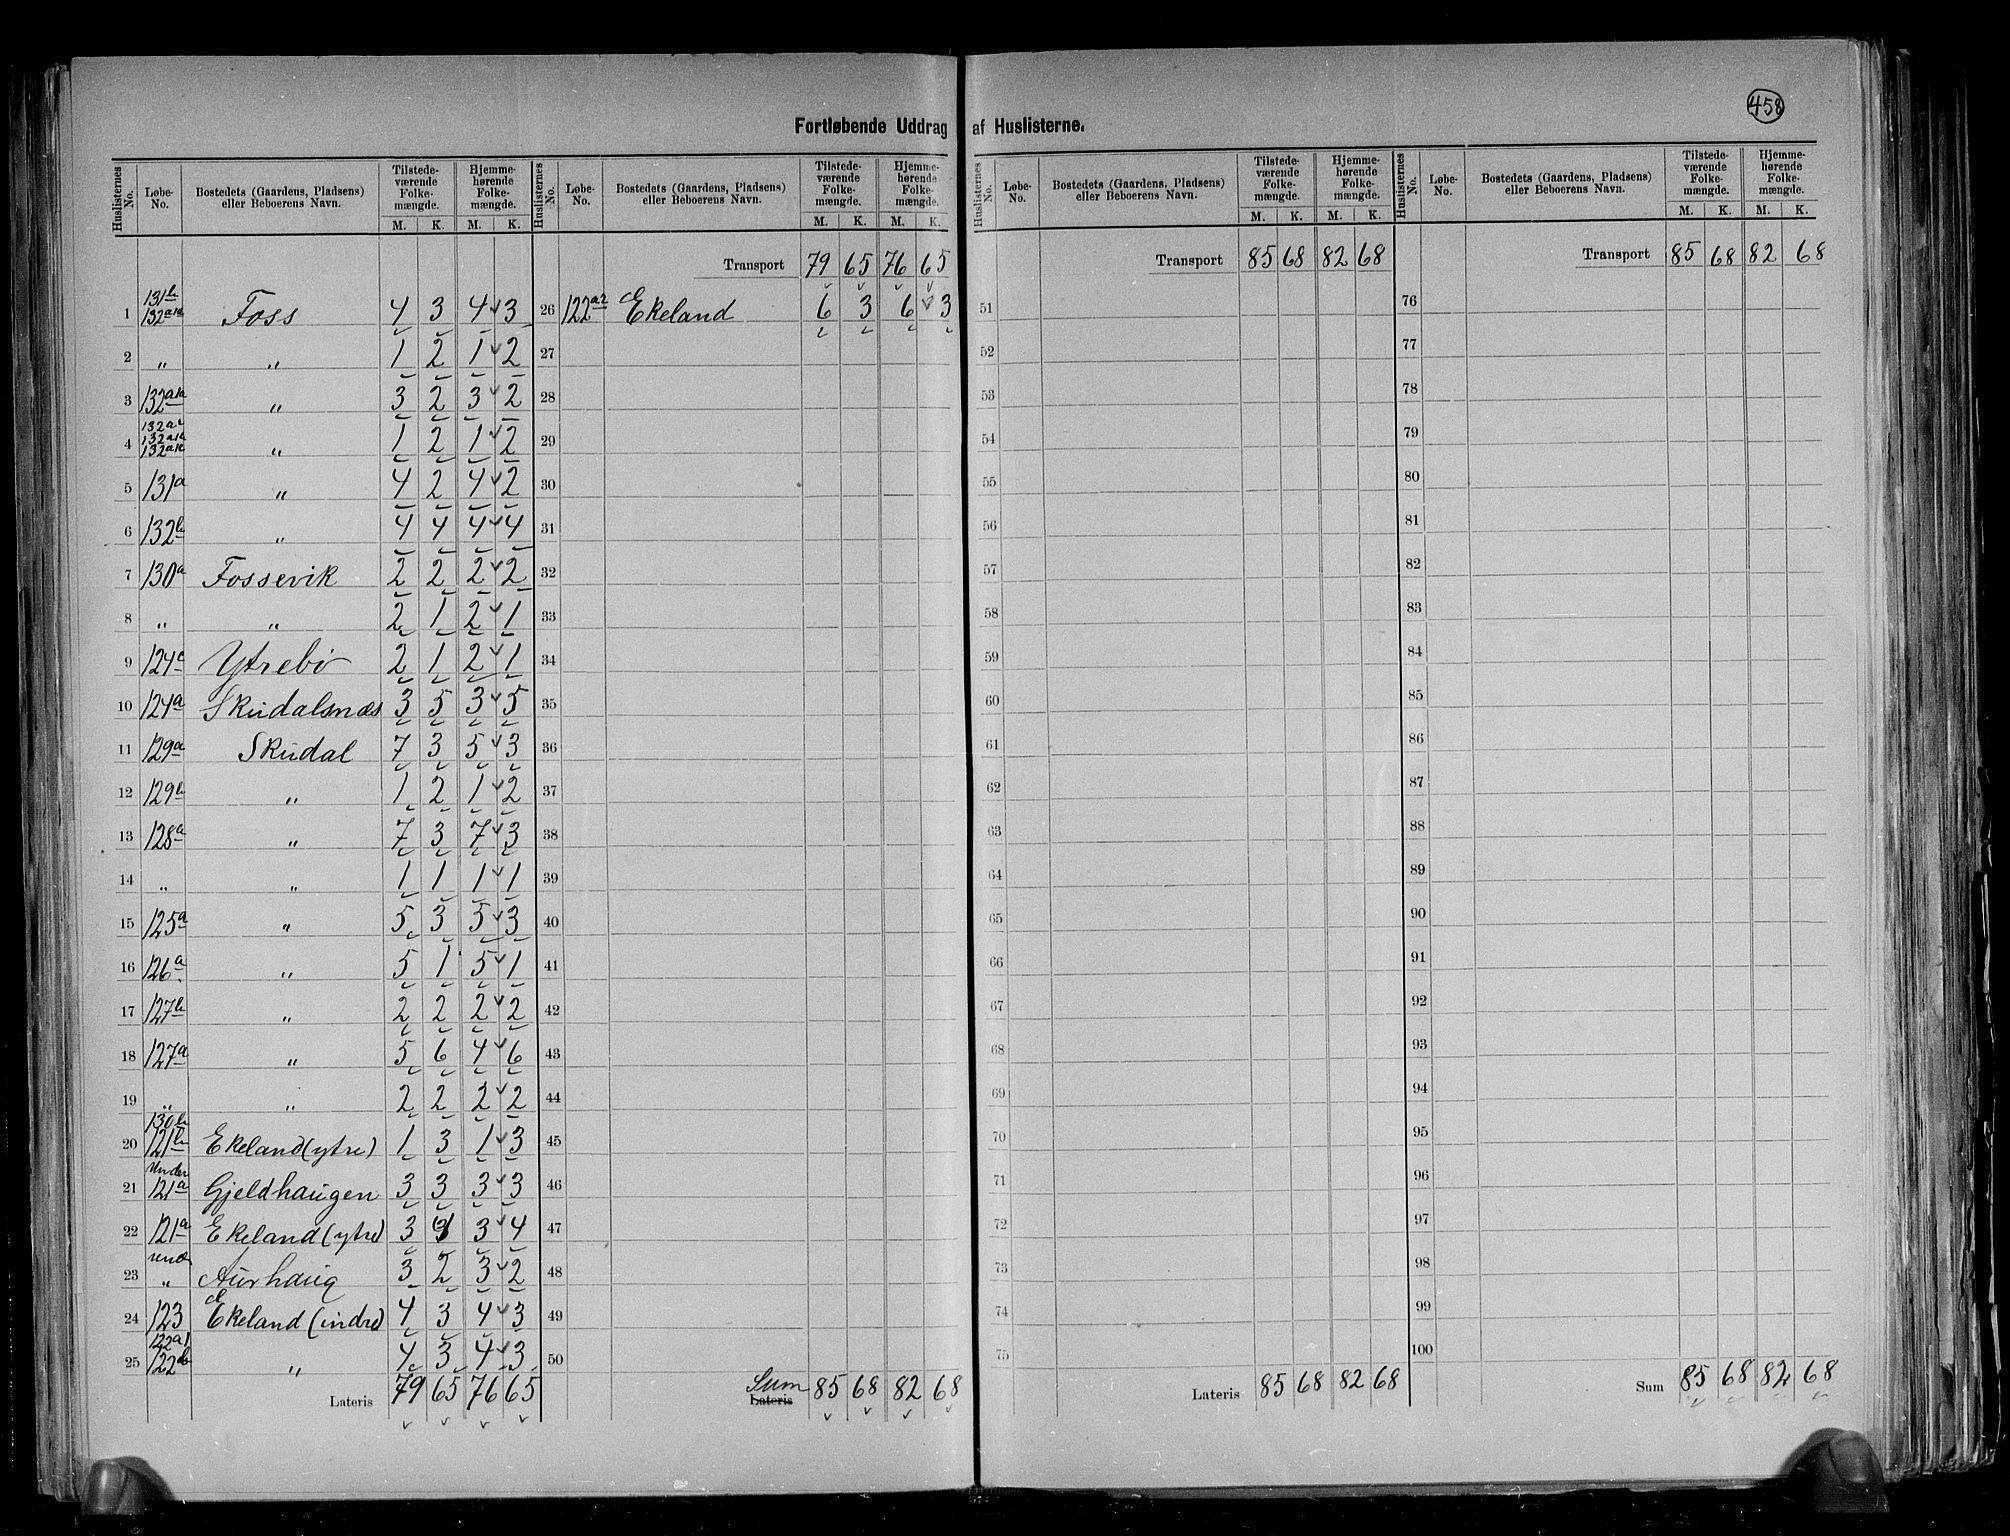 458
Fortløbende Uddrag af Huslisterne.
Huslisternes No. | Løbe-No. | Bostedets (Gaardens, Pladsens) eller Beboerens Navn. | Tilstede-værende Folke-mængde. M. K. | Hjemme-hørende Folke-mængde. M. K.
1 | 131b 132a | Foss | 4 | 3 | 4 | 3
2 | „ | „ | 1 | 2 | 1 | 2
3 | 132a | „ | 3 | 2 | 3 | 2
4 | 132a | „ | 1 | 2 | 1 | 2
5 | 131a | „ | 4 | 2 | 4 | 2
6 | 132b | „ | 4 | 4 | 4 | 4
7 | 130a | Fossevik | 2 | 2 | 2 | 2
8 | „ | „ | 2 | 1 | 2 | 1
9 | 124c | Ytrebø | 2 | 1 | 2 | 1
10 | 124a | Skudalsnæs | 3 | 5 | 3 | 5
11 | 129a | Skudal | 7 | 3 | 5 | 3
12 | 129b | „ | 1 | 2 | 1 | 2
13 | 128a | „ | 7 | 3 | 7 | 3
14 | „ | „ | 1 | 1 | 1 | 1
15 | 125a | „ | 5 | 3 | 5 | 3
16 | 126a | „ | 5 | 1 | 5 | 1
17 | 127b | „ | 2 | 2 | 2 | 2
18 | 127a | „ | 5 | 6 | 4 | 6
19 | „ | „ | 2 | 2 | 2 | 2
20 | 130b 121b | Ekeland (ytre) | 1 | 3 | 1 | 3
21 | under 121a | Gjeldhaugen | 3 | 3 | 3 | 3
22 | 121a | Ekeland (ytre) | 3 | 4 | 3 | 4
23 | „ | Aurhaug | 3 | 2 | 3 | 2
24 | 123 | Ekeland (indre) | 4 | 3 | 4 | 3
25 | 122a1 122b | „ | 4 | 3 | 4 | 3
Lateris | 79 | 65 | 76 | 65
Huslisternes No. | Løbe-No. | Bostedets (Gaardens, Pladsens) eller Beboerens Navn. | Tilstede-værende Folke-mængde. M. K. | Hjemme-hørende Folke-mængde. M. K.
Transport | 79 | 65 | 76 | 65
26 | 122a2 | Ekeland | 6 | 3 | 6 | 3
27
28
29
30
31
32
33
34
35
36
37
38
39
40
41
42
43
44
45
46
47
48
49
50
Sum Lateris | 85 | 68 | 82 | 68
Huslisternes No. | Løbe-No. | Bostedets (Gaardens, Pladsens) eller Beboerens Navn. | Tilstede-værende Folke-mængde. M. K. | Hjemme-hørende Folke-mængde. M. K.
Transport | 85 | 68 | 82 | 68
51
52
53
54
55
56
57
58
59
60
61
62
63
64
65
66
67
68
69
70
71
72
73
74
75
Lateris | 85 | 68 | 82 | 68
Huslisternes No. | Løbe-No. | Bostedets (Gaardens, Pladsens) eller Beboerens Navn. | Tilstede-værende Folke-mængde. M. K. | Hjemme-hørende Folke-mængde. M. K.
Transport | 85 | 68 | 82 | 68
76
77
78
79
80
81
82
83
84
85
86
87
88
89
90
91
92
93
94
95
96
97
98
99
100
Sum | 85 | 68 | 82 | 68